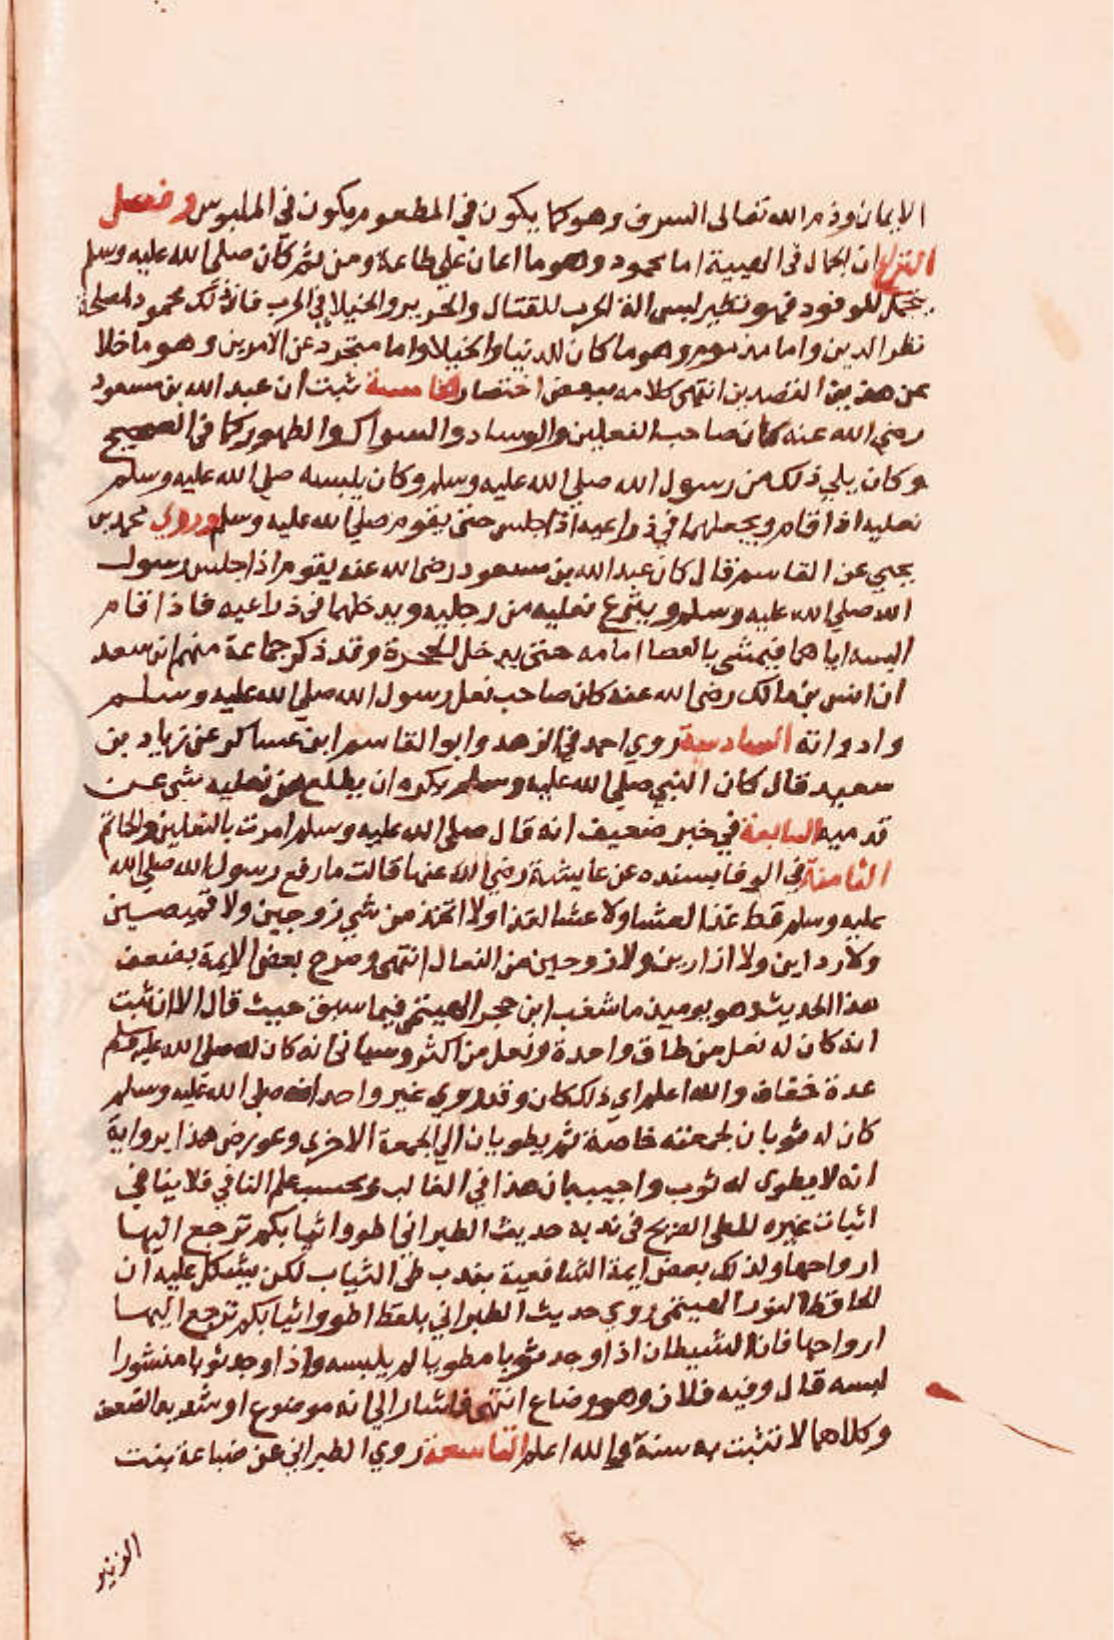 الايمان وذم الله تعالى السرف وهو كما يكون في المطعوم يكون في الملبوس وفصل
النزاع ان الجمال في الهيبة اما محمود وهو ما اعان علي طاعة ومن ثم كان صلى الله عليه وسلم
يتجمل للوفود فهو نظير لبس الة الحرب للقتال والحرير والخيلا في الحرب فان ذلك محمود لمصلحة
نظر الدين واما مذموم وهو ما كان للدنيا والخيلا واما متجرد عن الامرين وهو ما خلا
عن هذين القصدين انتهى كلامه ببعض اختصار الخامسة ثبت ان عبد الله بن مسعود
رضي الله عنه كان صاحب النعلين والوساد والسواك والطهور كما في الصحيح
وكان يلي ذلك من رسول الله صلي الله عليه وسلم وكان يلبسه صلي الله عليه وسلم
نعليه اذا قام ويجعلهما في ذراعيه اذا جلس حتى يقوم صلي الله عليه وسلم وروي محمد بن
يحيي عن القاسم قال كان عبد الله بن مسعود رضي الله عنه يقوم اذا جلس رسول
الله صلي الله عليه وسلم وينزع نعليه من رجليه ويدخلهما في ذراعيه فاذا قام
البسه اياهما فيمشي بالعصا امامه حتى يدخل الحجرة وقد ذكر جماعة منهم ابن سعد
ان انس بن مالك رضي الله عنه كان صاحب نعل رسول الله صلي الله عليه وسلم
واداوته السادسة روي احمد في الزهد وابو القاسم ابن عساكر عن زياد بن
سعيد قال كان النبي صلي الله عليه وسلم يكره ان يطلع من نعليه شي عن
قدميه السابعة في خبر ضعيف انه قال صلي الله عليه وسلم امرت بالنعلين والخاتم
الثامنة في الوفا بسنده عن عايشة رضي الله عنها قالت ما رفع رسول الله صلي الله
عليه وسلم قط غذا لعشا ولا عشا لغذا ولا اتخذ من شي زوجين ولا قميصين
ولا رداين ولا ازارين ولا زوجين من النعال انتهى وصرح بعض الايمة بضعف
هذا الحديث وهو يويد ما شغب ابن حجر الهيتمي فيما سبق حيث قال الا ان ثبت
انه كان له نعل من طاق واحدة ونعل من اكثر وسياتي انه كان له صلي الله عليه وسلم
عدة خفاف والله اعلم اي ذلك كان وقد روي غير واحد انه صلي الله عليه وسلم
كان له ثوبان لجمعته خاصة ثم يطويان الي الجمعة الاخرى وعورض هذا برواية
انه لا يطوى له ثوب واجيب بان هذا في الغالب وبحسب علم النافي فلا ينافي
اثبات غيره للطي الصريح في ندبه حديث الطبراني اطووا ثيابكم ترجع اليها
ارواحها ولذلك بعض ايمة الشافعية بندب طي الثياب لكن يشكل عليه ان
الحافظ النور الهيتمي روي حديث الطبراني بلفظ اطووا ثيابكم ترجع اليها
ارواحها فان الشيطان اذا وجد ثوبا مطويا لم يلبسه واذا وجد ثوبا منشورا
لبسه قال وفيه فلان وهو وضاع انتهى فاشار الي انه موضوع او شديد الضعف
وكلاهما لا تثبت به سنة والله اعلم التاسعة روي الطبراني عن ضباعة بنت
الزبير